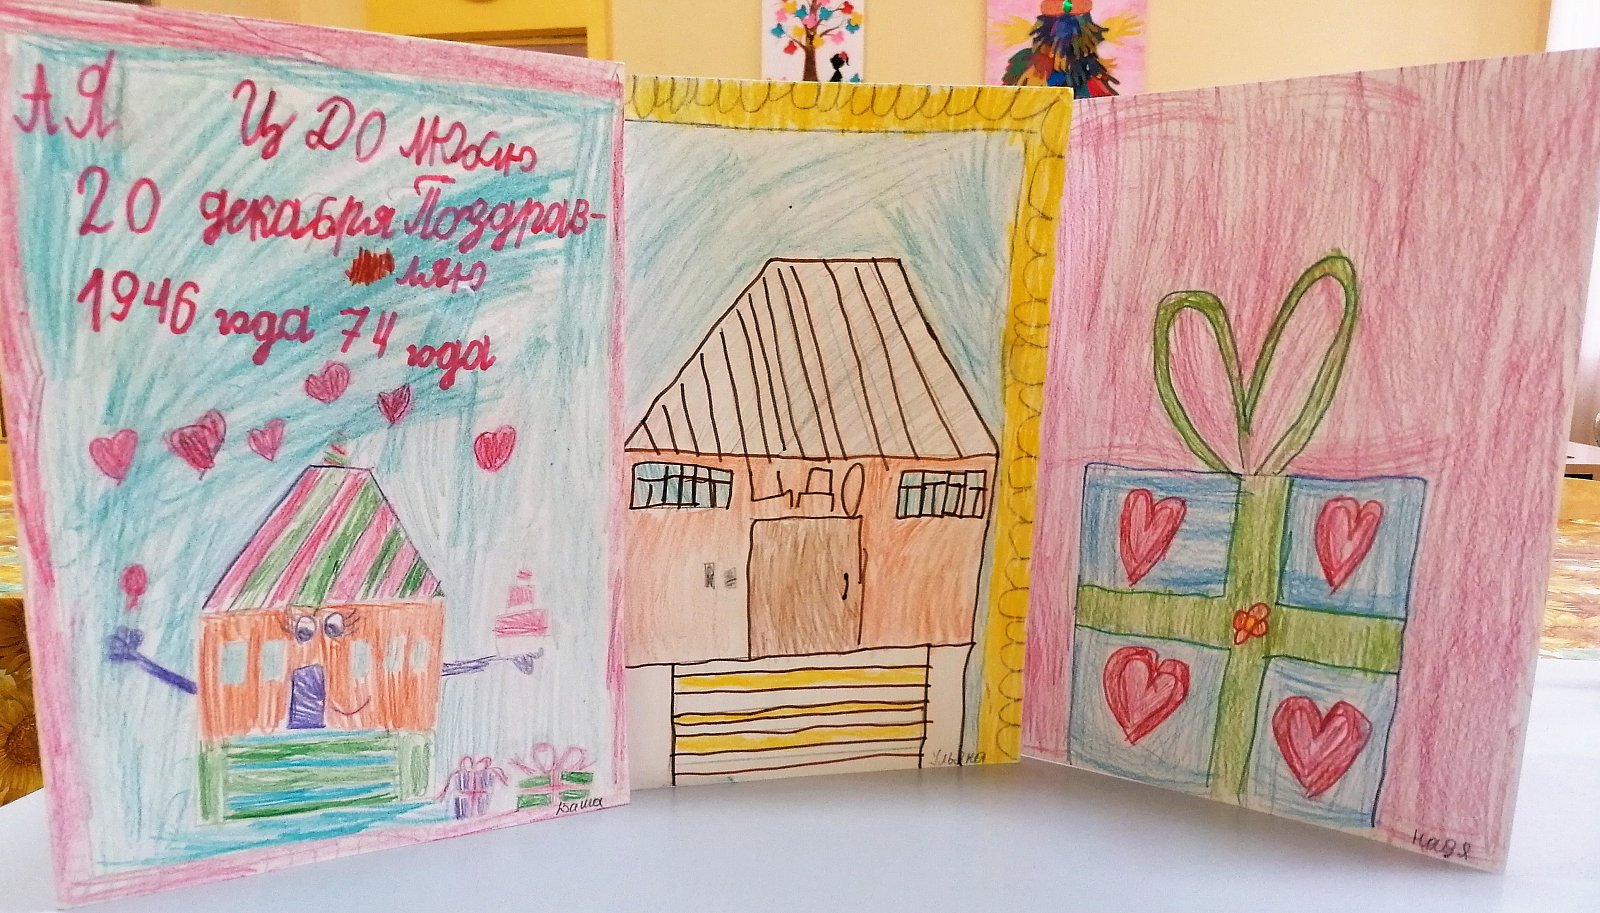 А Я ЦДО люблю
20 декабря Поздрав-
ляю
1946 года 74 года
ЦДО
Даша
Ульяна
Надя